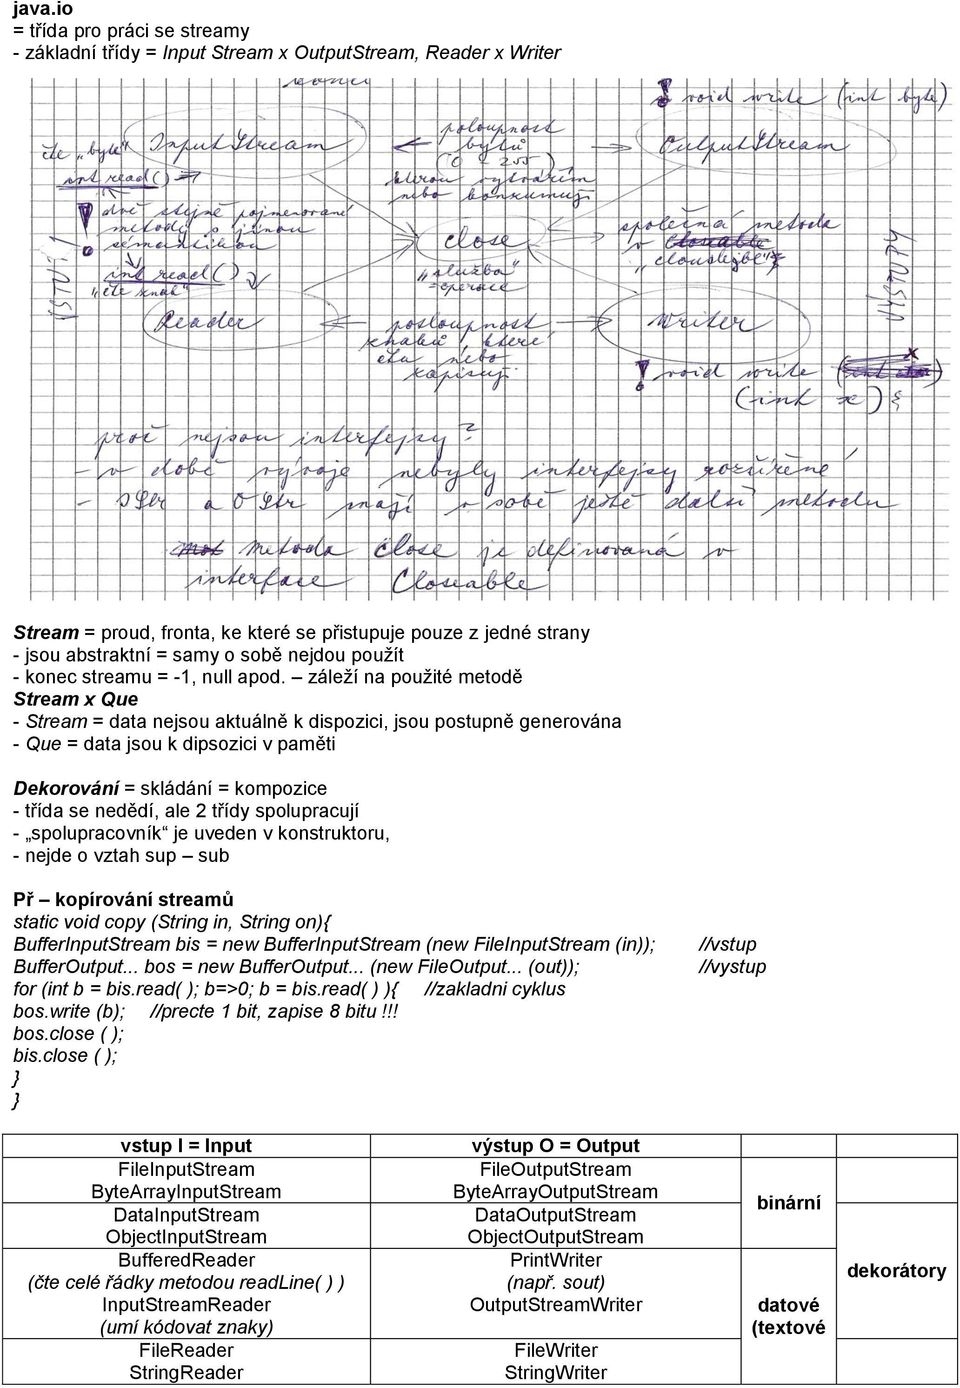 java.io
= třída pro práci se streamy
- základní třídy = Input Stream x OutputStream, Reader x Writer
! void write (int byte)
čte „byte“ InputStream
posloupnost
bytů
(0 - 255)
kterou vytvářím
nebo konzumuji
OutputStream
int read()
! dvě stejně pojmenované
metody s jinou
sémantikou
int read()
„čte znak“
VSTUP
close
„služba“
= operace
společná metoda
v Closeable
VÝSTUP
Reader
posloupnost
znaků, které
čtu nebo
zapisuji
Writer
! void write (int
(int x) {
proč nejsou interfejsy?
- v době vývoje nebyly interfejsy rozšířené
- IStr a OStr mají v sobě ještě další metodu
metoda close je definovaná v
interface Closeable
Stream = proud, fronta, ke které se přistupuje pouze z jedné strany
- jsou abstraktní = samy o sobě nejdou použít
- konec streamu = -1, null apod. – záleží na použité metodě
Stream x Que
- Stream = data nejsou aktuálně k dispozici, jsou postupně generována
- Que = data jsou k dipsozici v paměti
Dekorování = skládání = kompozice
- třída se nedědí, ale 2 třídy spolupracují
- „spolupracovník“ je uveden v konstruktoru,
- nejde o vztah sup – sub
Př – kopírování streamů
static void copy (String in, String on){
BufferInputStream bis = new BufferInputStream (new FileInputStream (in)); //vstup
BufferOutput... bos = new BufferOutput... (new FileOutput... (out)); //vystup
for (int b = bis.read( ); b=>0; b = bis.read( ) ){ //zakladni cyklus
bos.write (b); //precte 1 bit, zapise 8 bitu !!!
bos.close ( );
bis.close ( );
}
}
vstup I = Input výstup O = Output
FileInputStream FileOutputStream
ByteArrayInputStream ByteArrayOutputStream
binární
DataInputStream DataOutputStream
ObjectInputStream ObjectOutputStream
BufferedReader PrintWriter
(čte celé řádky metodou readLine( ) ) (např. sout)
dekorátory
InputStreamReader OutputStreamWriter datové
(umí kódovat znaky) (textové
FileReader FileWriter
StringReader StringWriter